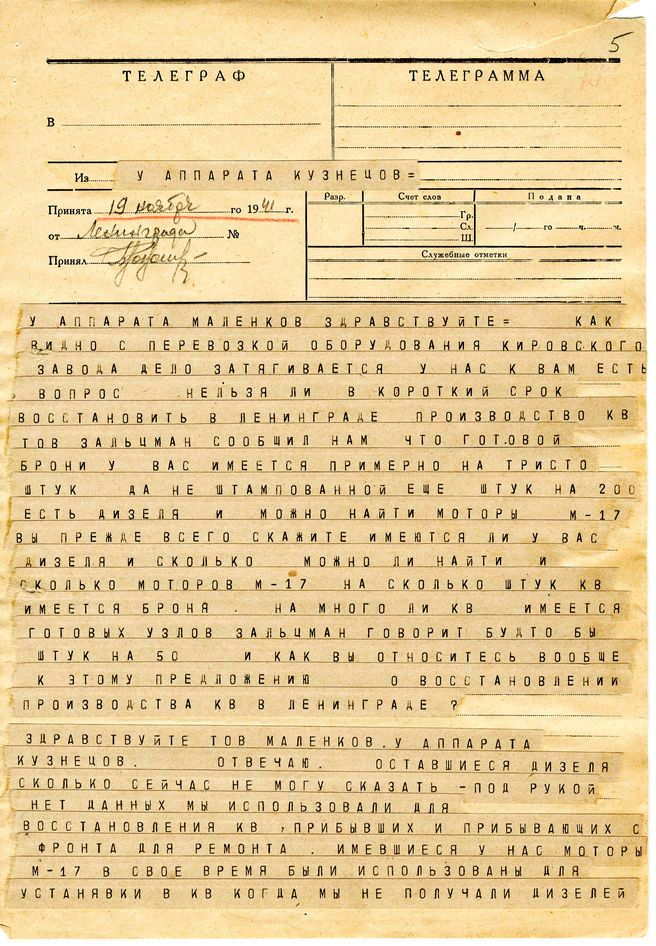 5
ТЕЛЕГРАФ
ТЕЛЕГРАММА
В
Из У АППАРАТА КУЗНЕЦОВ=
Принята 19 ноября го 1941 г.
от Ленинграда №
Принял
Разр.
Счет слов
Подана
Гр.
Сл.
Ш.
/ го ч. м.
Служебные отметки
У АППАРАТА МАЛЕНКОВ ЗДРАВСТВУЙТЕ= КАК
ВИДНО С ПЕРЕВОЗКОЙ ОБОРУДОВАНИЯ КИРОВСКОГО
ЗАВОДА ДЕЛО ЗАТЯГИВАЕТСЯ У НАС К ВАМ ЕСТЬ
ВОПРОС НЕЛЬЗЯ ЛИ В КОРОТКИЙ СРОК
ВОССТАНОВИТЬ В ЛЕНИНГРАДЕ ПРОИЗВОДСТВО КВ
ТОВ ЗАЛЬЦМАН СООБЩИЛ НАМ ЧТО ГОТОВОЙ
БРОНИ У ВАС ИМЕЕТСЯ ПРИМЕРНО НА ТРИСТО
ШТУК ДА НЕ ШТАМПОВАННОЙ ЕЩЕ ШТУК НА 200
ЕСТЬ ДИЗЕЛЯ И МОЖНО НАЙТИ МОТОРЫ М-17
ВЫ ПРЕЖДЕ ВСЕГО СКАЖИТЕ ИМЕЮТСЯ ЛИ У ВАС
ДИЗЕЛЯ И СКОЛЬКО МОЖНО ЛИ НАЙТИ И
СКОЛЬКО МОТОРОВ М-17 НА СКОЛЬКО ШТУК КВ
ИМЕЕТСЯ БРОНЯ . НА МНОГО ЛИ КВ ИМЕЕТСЯ
ГОТОВЫХ УЗЛОВ ЗАЛЬЦМАН ГОВОРИТ БУДТО БЫ
ШТУК НА 50 И КАК ВЫ ОТНОСИТЕСЬ ВООБЩЕ
К ЭТОМУ ПРЕДЛОЖЕНИЮ О ВОССТАНОВЛЕНИИ
ПРОИЗВОДСТВА КВ В ЛЕНИНГРАДЕ ?
ЗДРАВСТВУЙТЕ ТОВ МАЛЕНКОВ. У АППАРАТА
КУЗНЕЦОВ. ОТВЕЧАЮ. ОСТАВШИЕСЯ ДИЗЕЛЯ
СКОЛЬКО СЕЙЧАС НЕ МОГУ СКАЗАТЬ -ПОД РУКОЙ
НЕТ ДАННЫХ МЫ ИСПОЛЬЗОВАЛИ ДЛЯ
ВОССТАНОВЛЕНИЯ КВ ,ПРИБЫВШИХ И ПРИБЫВАЮЩИХ С
ФРОНТА ДЛЯ РЕМОНТА . ИМЕВШИЕСЯ У НАС МОТОРЫ
М-17 В СВОЕ ВРЕМЯ БЫЛИ ИСПОЛЬЗОВАНЫ ДЛЯ
УСТАНЯВКИ В КВ КОГДА МЫ НЕ ПОЛУЧАЛИ ДИЗЕЛЕЙ